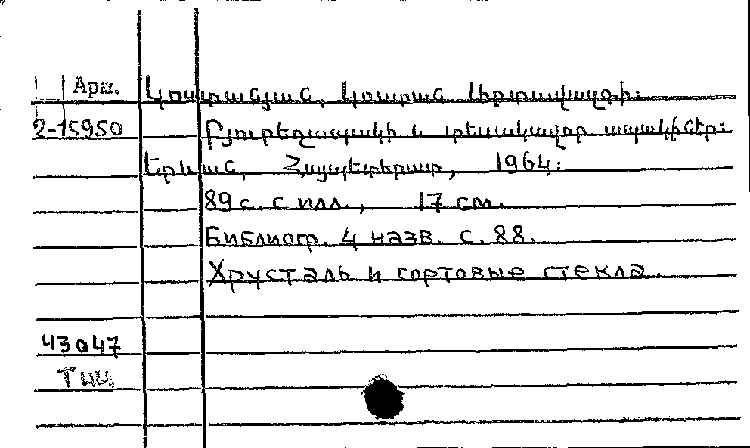 Арм.
Կոստանյան, Կոստան Արտավազդի:
2-15950
Բյուրեղապակի և տեսակավոր ապակիներ:
Երևան, Հայպետհրատ, 1964:
89 с. с илл., 17 см.
Библиогр. 4 назв. с. 88.
Хрусталь и сортовые стекла.
43047